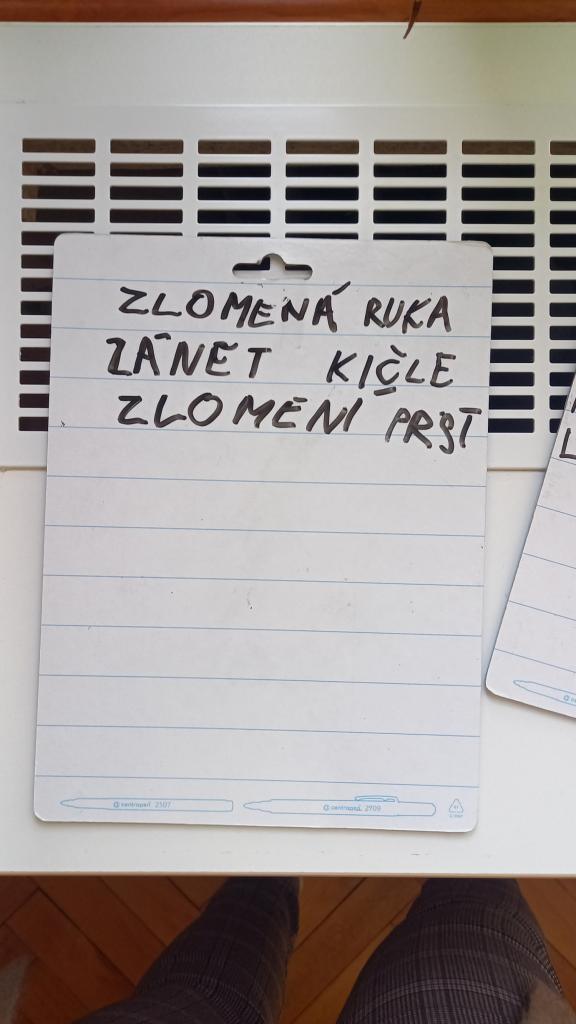 ZLOMENÁ RUKA
ZÁNĚT KIČLE
ZLOMENÍ PRST
centropen 2507
centropen 2709